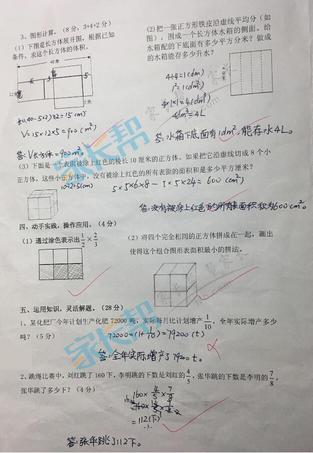 3、图形计算。(8分,3+2+2分)
(1)下图是长方体展开图,根据已知
条件,求这个长方体的体积。
(2)把一张正方形铁皮沿虚线平均分(如
图),围成一个长方体水箱的侧面。给
水箱配的下底面有多少平方分米?做成
的水箱能存多少升水?
4÷4=1(dm)
1²=1(dm²)
1×1×4=4(dm³)
4dm³=4L
V=15×12×5=900(cm³)
答:V长方体=900cm³
答:水箱下底面有1dm²,能存水4L。
(3)下面是一个表面被涂上红色的棱长10厘米的正方体。如果把它沿虚线切成8个小
正方体,这些小正方体中,没有被涂上红色的所有面的面积和是多少平方厘米?
10÷2=5(cm)
5×5×6×8-5×5×24=600(cm²)
答:没有被涂上红色的所有面面积和为600cm²。
四、动手实践,操作应用。(4分)
(1)通过涂色表示出
(2)将四个完全相同的正方体拼成在一起,画出
使得这个组合图形表面积最小的拼法。
五、运用知识,灵活解题。(28分)
1、某化肥厂今年计划生产化肥72000吨,实际每月比计划增产1/10,全年实际增产多少
吨?(5分)
72000×(1+1/10)=79200(t)
答:全年实际增产了79200t。
2、跳绳比赛中,刘红跳了160下,李明跳的下数是刘红的4/5,张华跳的下数是李明的7/8,
张华跳了多少下?(4分)
160×4/5×7/8
=112(下)
答:张华跳了112下。
家长帮